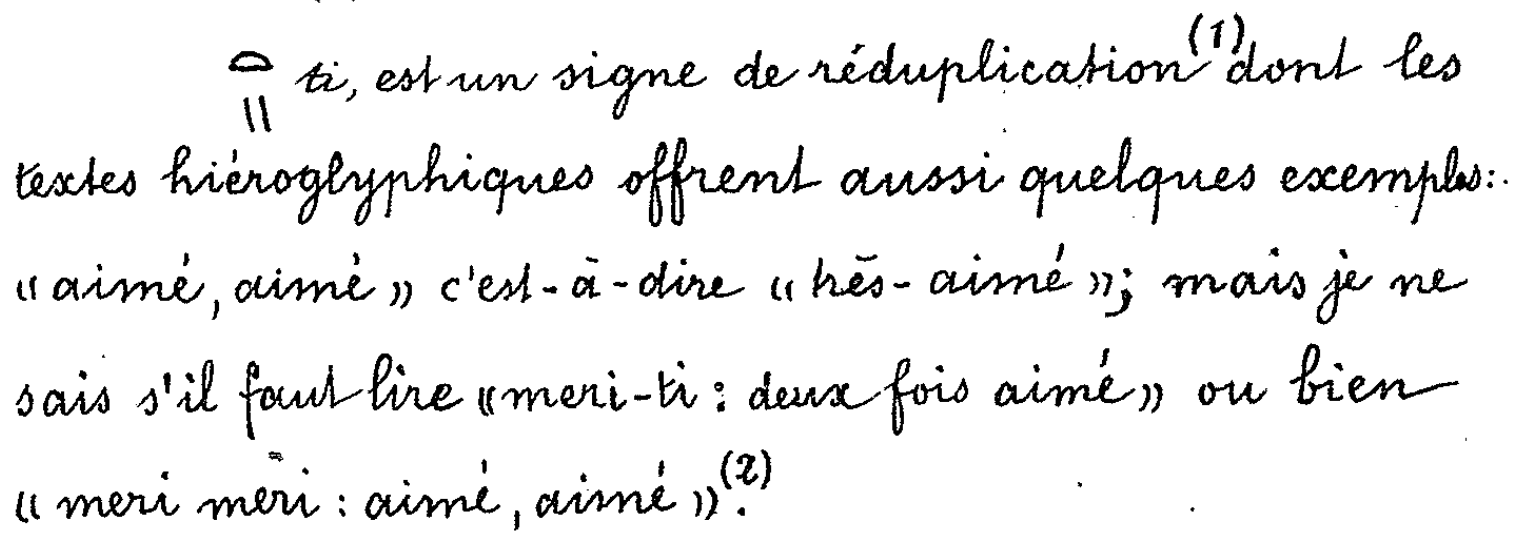 𓏏𓏮 ti, est un signe de réduplication (1) dont les
textes hiéroglyphiques offrent aussi quelques exemples:
«aimé, aimé» c'est-à-dire «très-aimé»; mais je ne
sais s'il faut lire «meri-ti : deux fois aimé» ou bien
«meri meri : aimé, aimé» (2).